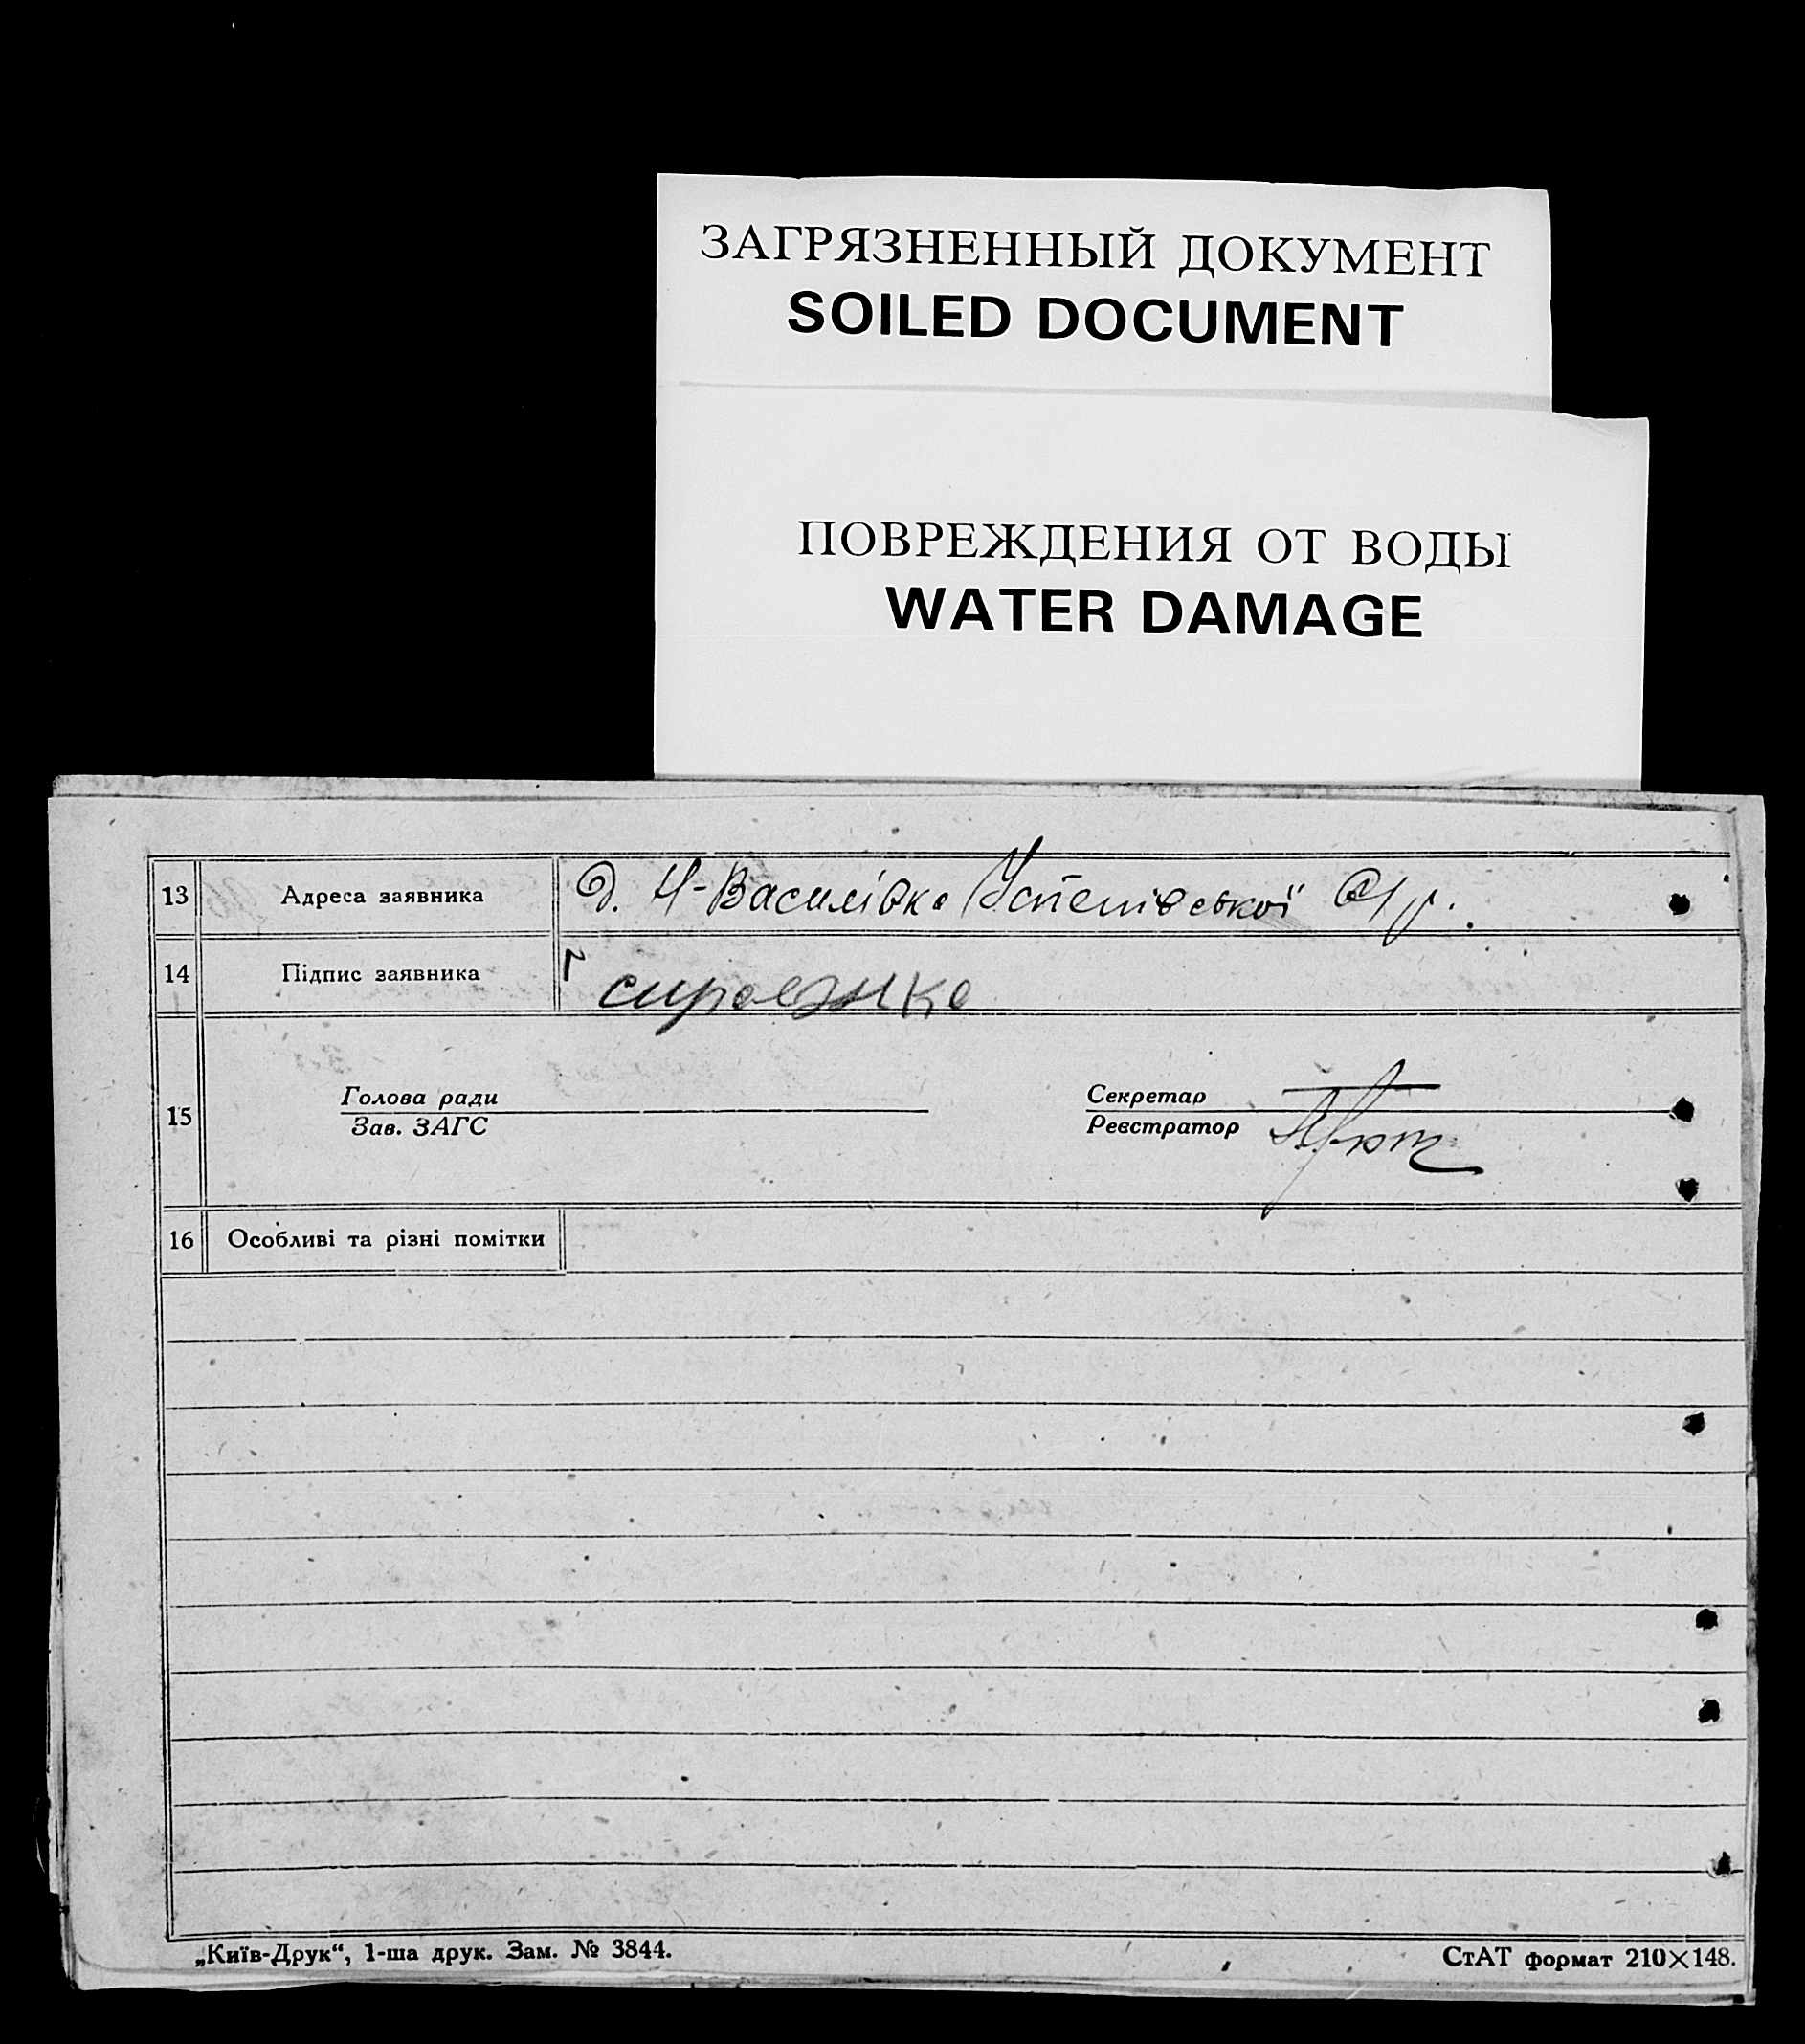 ЗАГРЯЗНЕННЫЙ ДОКУМЕНТ
SOILED DOCUMENT
ПОВРЕЖДЕНИЯ ОТ ВОДЫ
WATER DAMAGE
13 Адреса заявника д. Н-Василівка Успенівської с/р.
14 Підпис заявника
15
Голова ради
Зав. ЗАГС
Секретар
Реєстратор
16 Особливі та різні помітки
„Київ-Друк“, 1-ша друк. Зам. № 3844.
СтАТ формат 210×148.